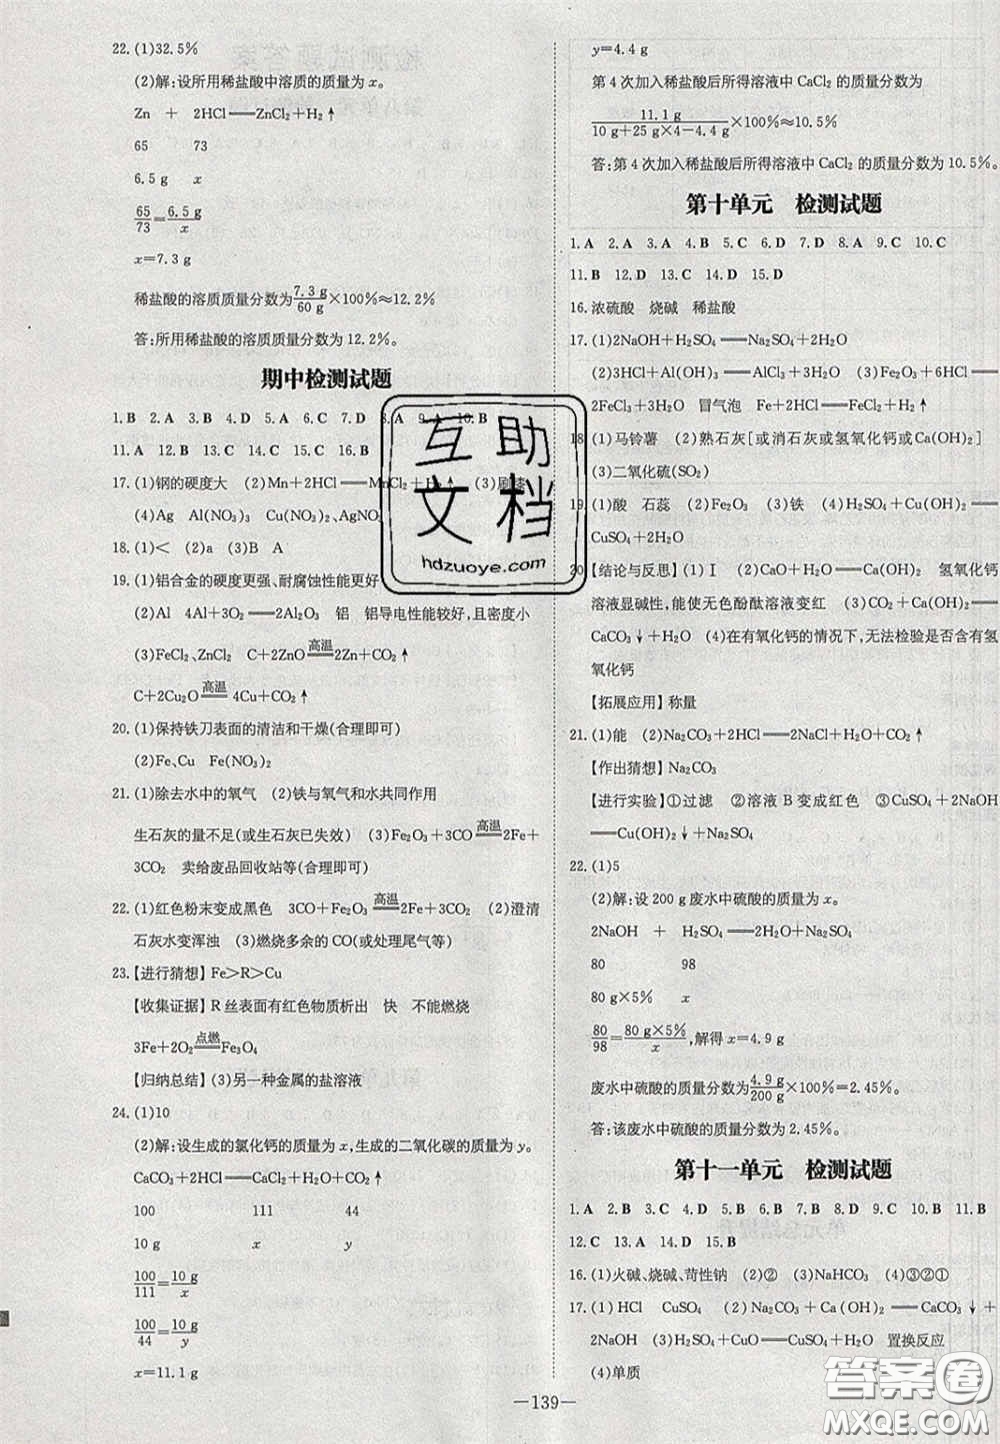 22. (1)32.5%
(2)解:设所用稀盐酸中溶质的质量为x。
Zn + 2HCl══ZnCl₂+H₂↑
65 73
6.5 g x
65/73=6.5 g/x
x=7.3 g
稀盐酸的溶质质量分数为7.3 g/60 g×100%≈12.2%
答:所用稀盐酸的溶质质量分数为12.2%。
期中检测试题
1. B 2. A 3. B 4. D 5. A 6. C 7. D 8. A 9. A 10. B
11. A 12. D 13. C 14. C 15. A 16. B
17. (1)钢的硬度大 (2)Mn+2HCl══MnCl₂+H₂↑ (3)刷漆
(4)Ag Al(NO₃)₃ Cu(NO₃)₂、AgNO₃
18. (1)< (2)a (3)B A
19. (1)铝合金的硬度更强、耐腐蚀性能更好
(2)Al 4Al+3O₂══2Al₂O₃ 铝 铝导电性能较好,且密度小
(3)FeCl₂、ZnCl₂ C+2ZnO═高温═2Zn+CO₂↑
C+2Cu₂O═高温═4Cu+CO₂↑
20. (1)保持铁刀表面的清洁和干燥(合理即可)
(2)Fe、Cu Fe(NO₃)₂
21. (1)除去水中的氧气 (2)铁与氧气和水共同作用
生石灰的量不足(或生石灰已失效) (3)Fe₂O₃+3CO═高温═2Fe+
3CO₂ 卖给废品回收站等(合理即可)
22. (1)红色粉末变成黑色 3CO+Fe₂O₃═高温═2Fe+3CO₂ (2)澄清
石灰水变浑浊 (3)燃烧多余的CO(或处理尾气等)
23. 【进行猜想】Fe>R>Cu
【收集证据】R丝表面有红色物质析出 快 不能燃烧
3Fe+2O₂═点燃═Fe₃O₄
【归纳总结】(3)另一种金属的盐溶液
24. (1)10
(2)解:设生成的氯化钙的质量为x,生成的二氧化碳的质量为y。
CaCO₃+2HCl══CaCl₂+H₂O+CO₂↑
100 111 44
10 g x y
100/111=10 g/x
100/44=10 g/y
x=11.1 g
y=4.4 g
第4次加入稀盐酸后所得溶液中CaCl₂的质量分数为
11.1 g/10 g+25 g×4-4.4 g×100%≈10.5%
答:第4次加入稀盐酸后所得溶液中CaCl₂的质量分数为10.5%。
第十单元 检测试题
1. A 2. A 3. A 4. B 5. C 6. D 7. D 8. A 9. C 10. C
11. B 12. D 13. C 14. D 15. D
16. 浓硫酸 烧碱 稀盐酸
17. (1)2NaOH+H₂SO₄══Na₂SO₄+2H₂O
(2)3HCl+Al(OH)₃══AlCl₃+3H₂O (3)6HCl+Fe₂O₃══
2FeCl₃+3H₂O 冒气泡 Fe+2HCl══FeCl₂+H₂↑
18. (1)马铃薯 (2)熟石灰[或消石灰或氢氧化钙或Ca(OH)₂]
(3)二氧化硫(SO₂)
19. (1)酸 石蕊 (2)Fe₂O₃ (3)铁 (4)H₂SO₄+Cu(OH)₂══
CuSO₄+2H₂O
20. 【结论与反思】(1)Ⅰ (2)CaO+H₂O══Ca(OH)₂ 氢氧化钙
溶液显碱性,能使无色酚酞溶液变红 (3)CO₂+Ca(OH)₂══
CaCO₃↓+H₂O (4)在有氧化钙的情况下,无法检验是否含有氢
氧化钙
【拓展应用】称量
21. (1)能 (2)Na₂CO₃+2HCl══2NaCl+H₂O+CO₂↑
【作出猜想】Na₂CO₃
【进行实验】①过滤 ②溶液B变成红色 ③CuSO₄+2NaOH
══Cu(OH)₂↓+Na₂SO₄
22. (1)5
(2)解:设200 g废水中硫酸的质量为x。
2NaOH + H₂SO₄══Na₂SO₄+2H₂O
80 98
80 g×5% x
80/98=80 g×5%/x,解得x=4.9 g
废水中硫酸的质量分数为4.9 g/200 g×100%=2.45%。
答:该废水中硫酸的质量分数为2.45%。
第十一单元 检测试题
1. A 2. B 3. C 4. D 5. D 6. B 7. B 8. D 9. C 10. B 11. B
12. C 13. A 14. D 15. B
16. (1)火碱、烧碱、苛性钠 (2)② (3)NaHCO₃ (4)③②①
17. (1)HCl CuSO₄ (2)Na₂CO₃+Ca(OH)₂══CaCO₃↓+
2NaOH (3)H₂SO₄+CuO══CuSO₄+H₂O 置换反应
(4)单质
—139—
互助
文档
hdzuoye.com
答案圈
MXQE.COM